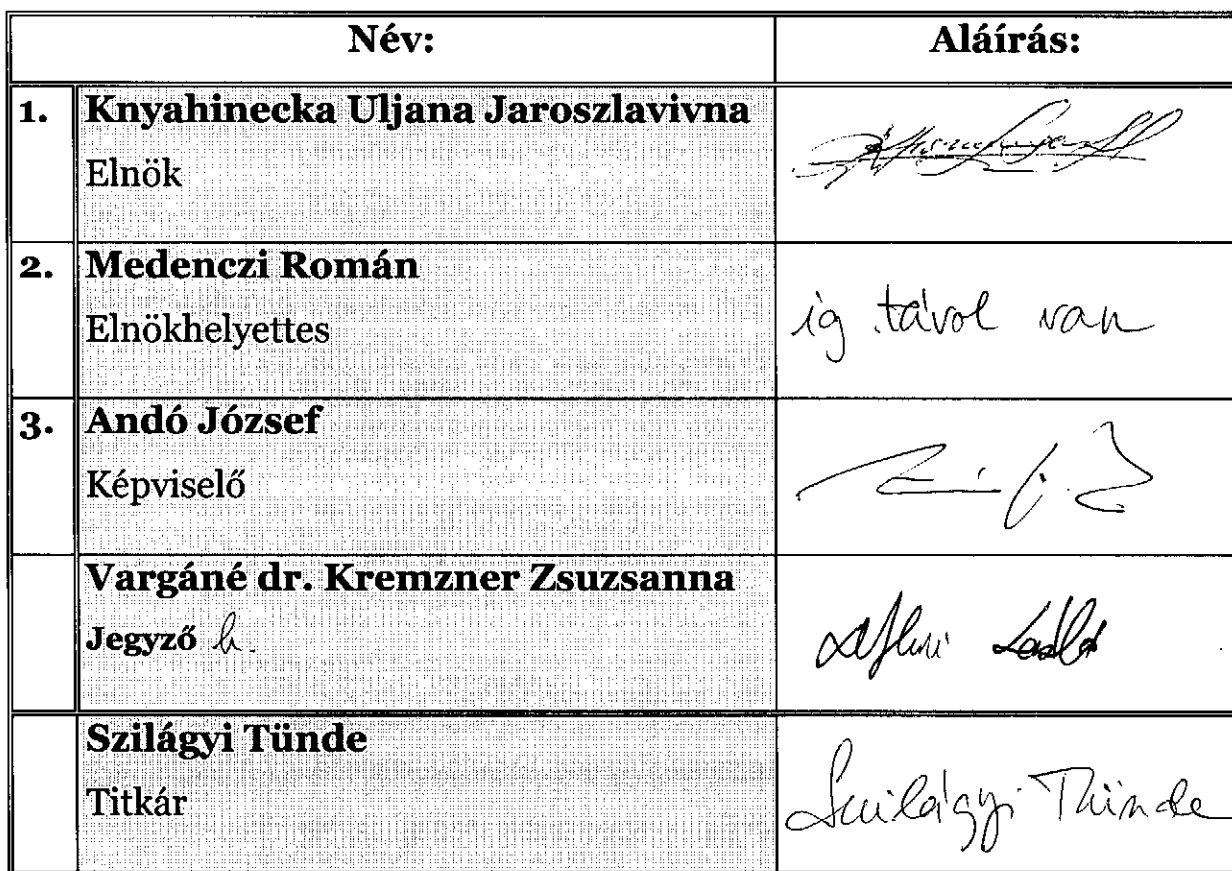 Név: Aláírás:
1. Knyahinecka Uljana Jaroszlavivna
Elnök
2. Medenczi Román
Elnökhelyettes
ig. távol van
3. Andó József
Képviselő
Vargáné dr. Kremzner Zsuzsanna
Jegyző h.
László
Szilágyi Tünde
Titkár
Szilágyi Tünde